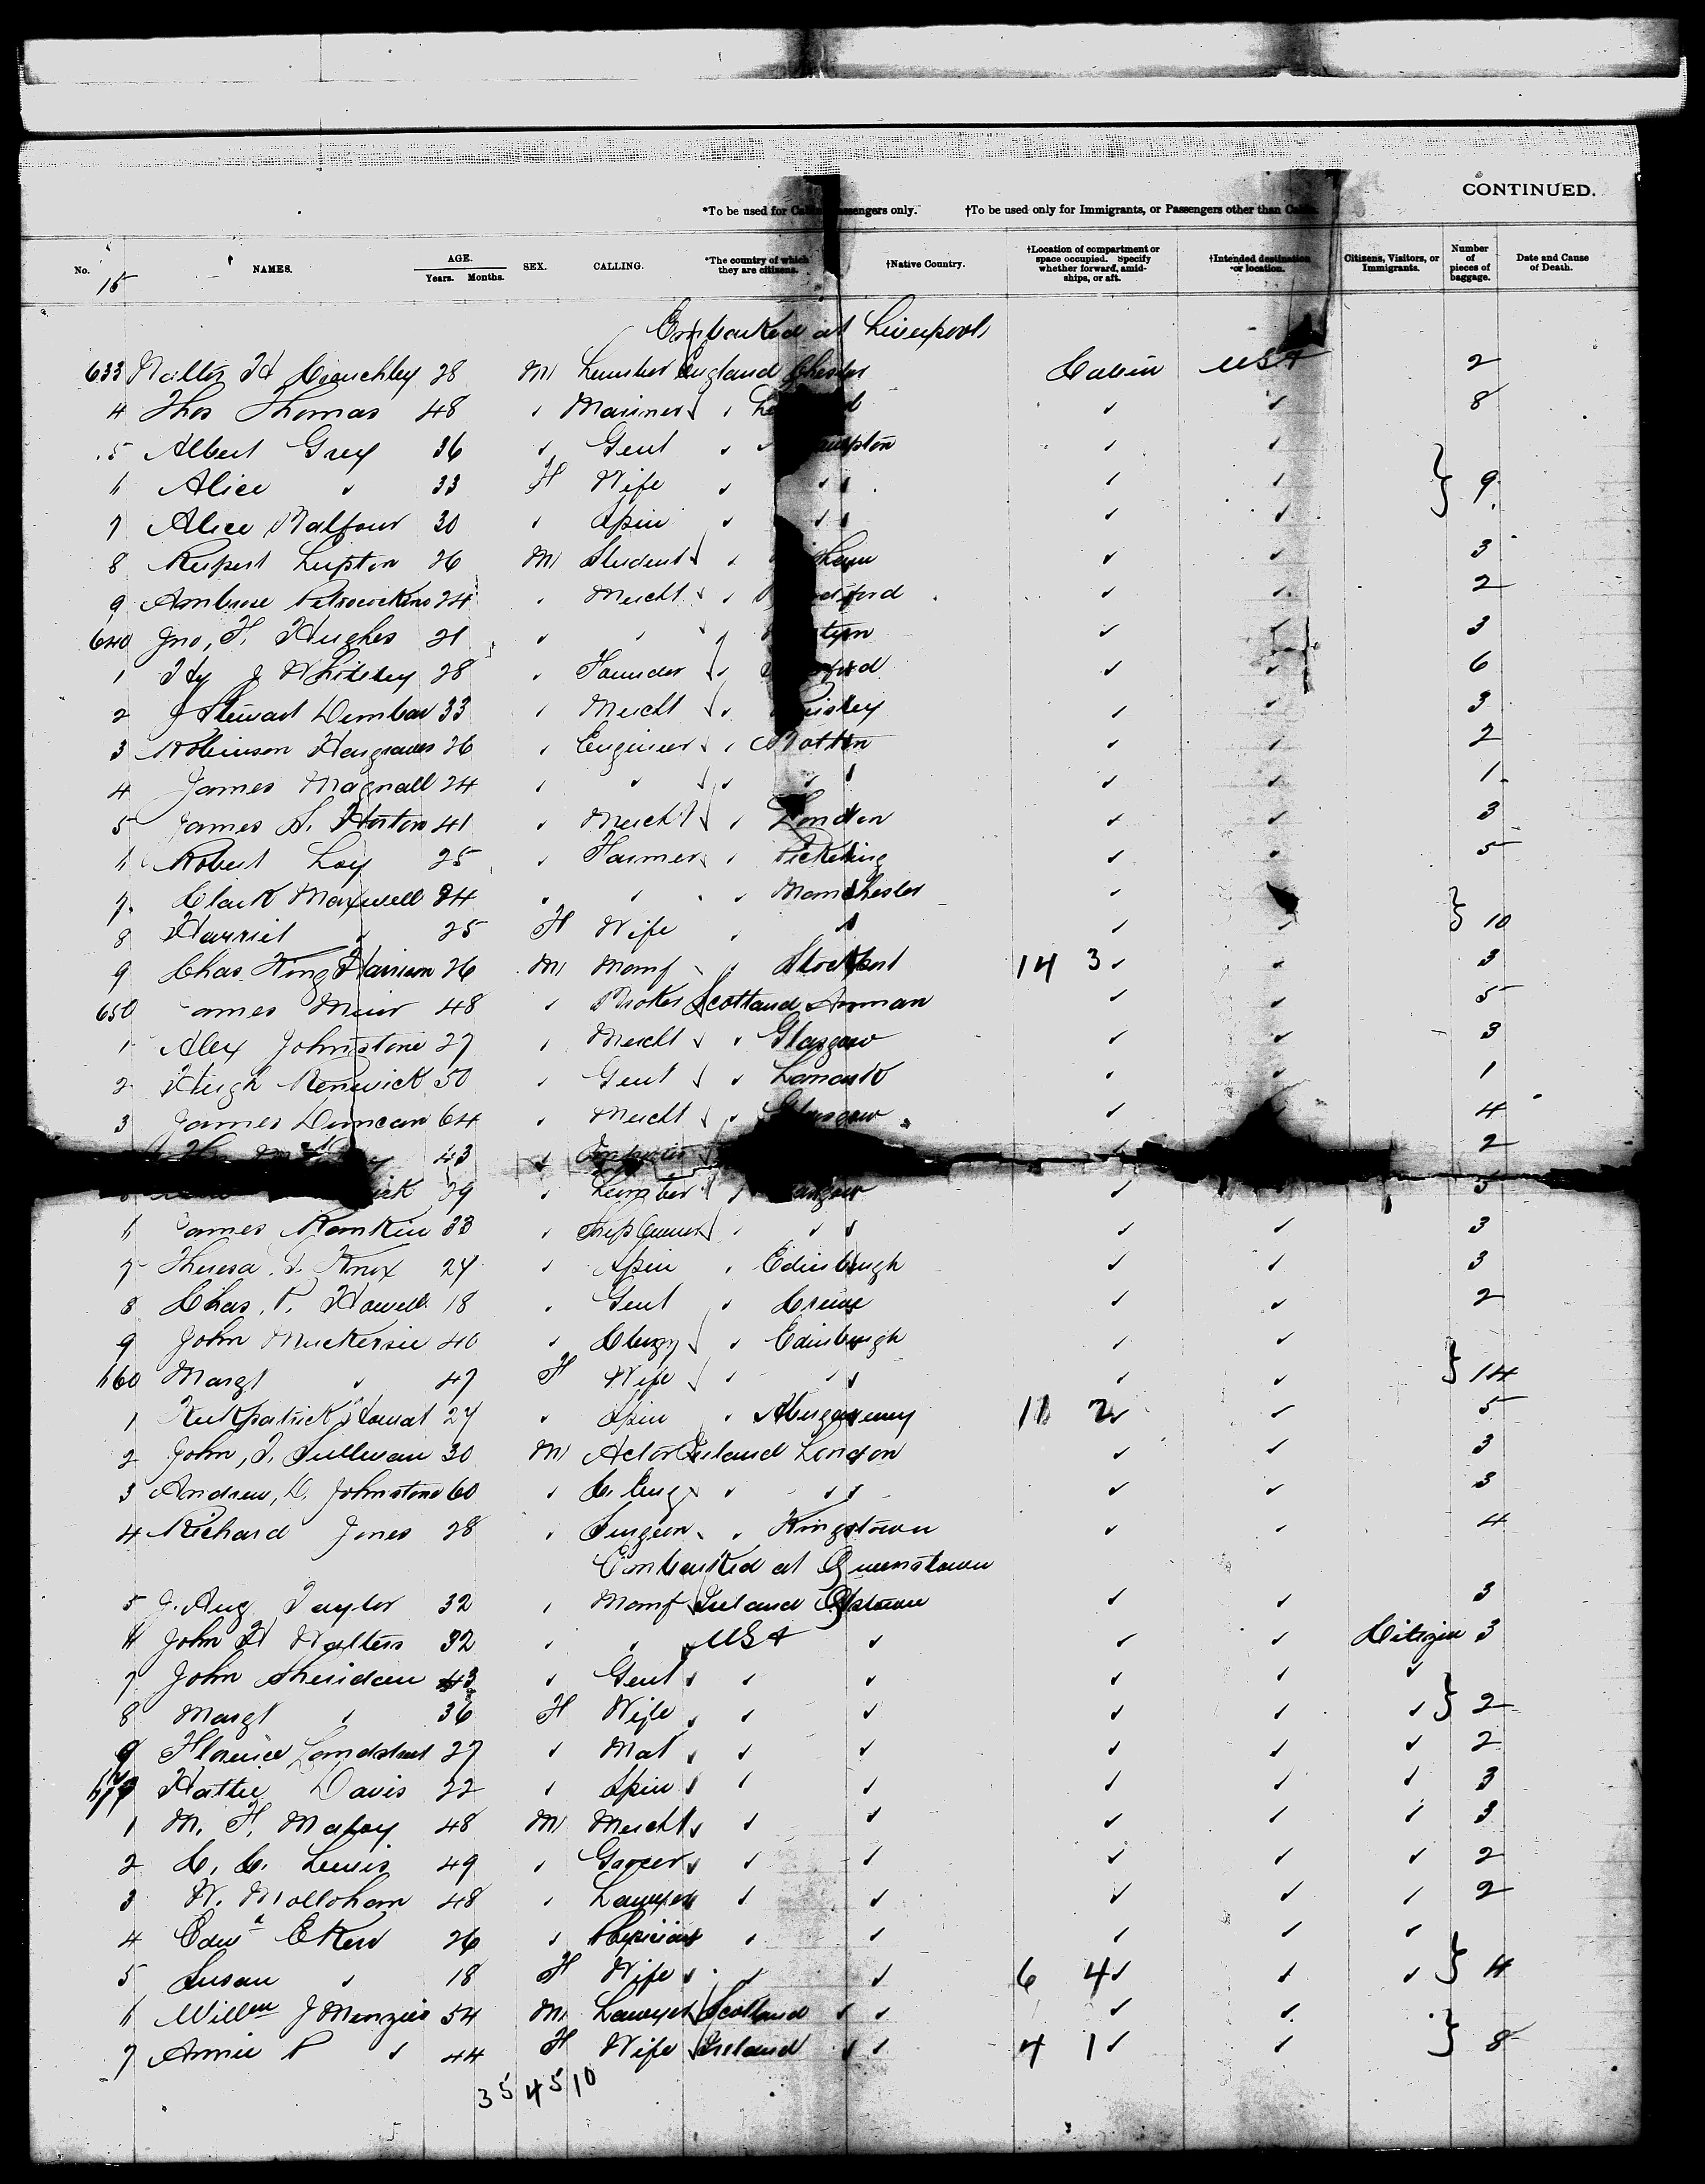 CONTINUED.
*To be used for Cabin Passengers only. †To be used only for Immigrants, or Passengers other than Cabin.
No. NAMES. AGE. Years. Months. SEX. CALLING. *The country of which they are citizens. †Native Country. †Location of compartment or space occupied. Specify whether forward, amidships, or aft. †Intended destination or location. Citizens, Visitors, or Immigrants. Number of pieces of baggage. Date and Cause of Death.
15
Embarked at Liverpool
633 H Crouchley 28 M England Chester Cabin USA 2
4 Thos Thomas 48 " Mariner " " " 8
5 Albert Grey 36 " Gent " " "
6 Alice " 33 F Wife " " " " } 9
7 Alice Balfour 30 " Spin " " " "
8 Rupert Lupton 26 M Student " " " 3
9 Ambrose 24 " Mercht " " " 2
640 Jno, F. Hughes 21 " " " " " 3
1 Hy J Whiteley 28 " Founder " " " 6
2 J Stewart Dunbar 33 " Mercht " " " 3
3 Robinson Hargraves 26 " Engineer " Bolton " " 2
4 James Magnall 24 " " " " " " 1
5 James S. Horton 41 " Mercht " London " " 3
6 Robert Loy 25 " Farmer " Pickering " " 5
7 Clark Maxwell 24 " " " Manchester " "
8 Harriet " 25 F Wife " " " " } 10
9 Chas King Harrison 26 M Manf " Stockport 14 3 " " 3
650 James Muir 48 " Broker Scotland Annan " " 5
1 Alex Johnstone 27 " Mercht " Glasgow " " 3
2 Hugh Renwick 50 " Gent " Lanark " " 1
3 James Duncan 64 " Mercht " Glasgow " " 4
43 " " 2
39 " " " " 5
6 James Rankin 33 " Ship Owner " " " " 3
7 Theresa Knox 24 " Spin " Edinburgh " " 3
8 Chas, P. Howell 18 " Gent " Crewe " " 2
9 John Muckersie 40 " Clergy " Edinburgh " "
660 Margt " 47 F Wife " " " " } 14
1 Kirkpatrick 27 " Spin " Abergavenny 11 2 " " 5
2 John, T. Sullivan 30 M Actor Ireland London " " 3
3 Andrew, D. Johnstone 60 " C. Eng " " " " 3
4 Richard Jones 28 " Surgeon " Kingstown " " 4
Embarked at Queenstown
5 J. Aug Taylor 32 " Manf Ireland Qstown " " 3
6 John H Walters 32 " " USA " " " Citizen 3
7 John Sheridan 43 " Gent " " " " "
8 Margt " 36 F Wife " " " " " } 2
9 Florence Longstreet 27 " Mat " " " " " 2
670 Hattie Davis 22 " Spin " " " " " 3
1 M. F. 48 M Mercht " " " " " 3
2 C. C. Lewis 49 " Grocer " " " " " 2
3 W. Mollohan 48 " Lawyer " " " " " 2
4 Edwd 26 " Physician " " " " "
5 Susan " 18 F Wife " " 6 4 " " " } 4
6 Willm J Menzies 54 M Lawyer Scotland " " " "
7 Annie P " 44 F Wife Ireland " " 4 1 " " } 8
35 45 10